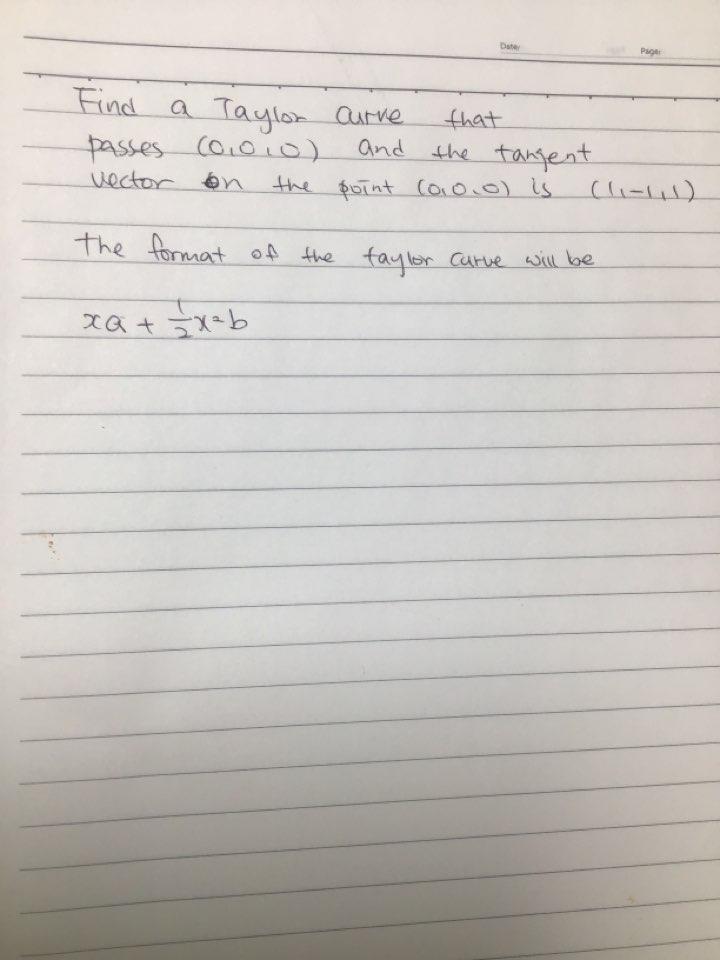 Date/
Page:
Find a Taylor curve that
passes (0,0,0) and the tangent
vector on the point (0,0,0) is (1,-1,1)
the format of the taylor curve will be
xa + 1/2 x² b